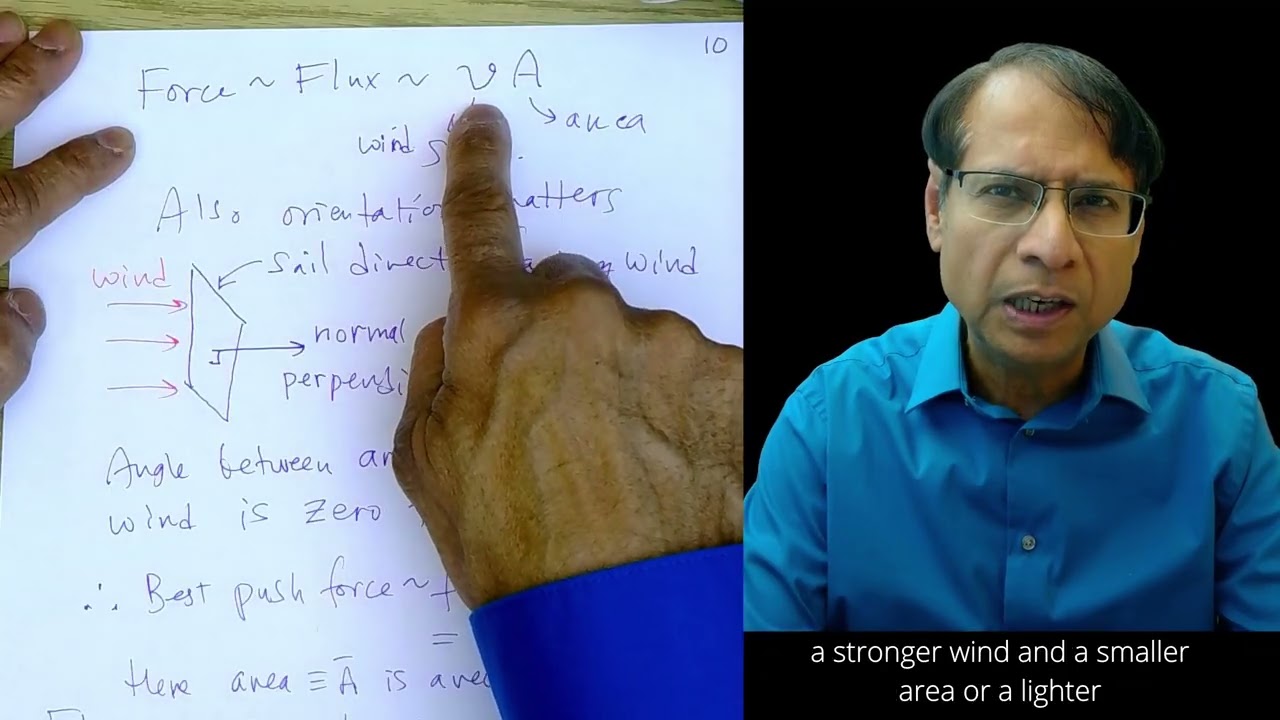 10
Force ~ Flux ~ v A
area
wind
Also orientation matters
sail direct wind
wind
normal
perpendi
Angle between
wind is zero
∴ Best push force ~ f
=
Here area ≡ A̅ is
a stronger wind and a smaller
area or a lighter